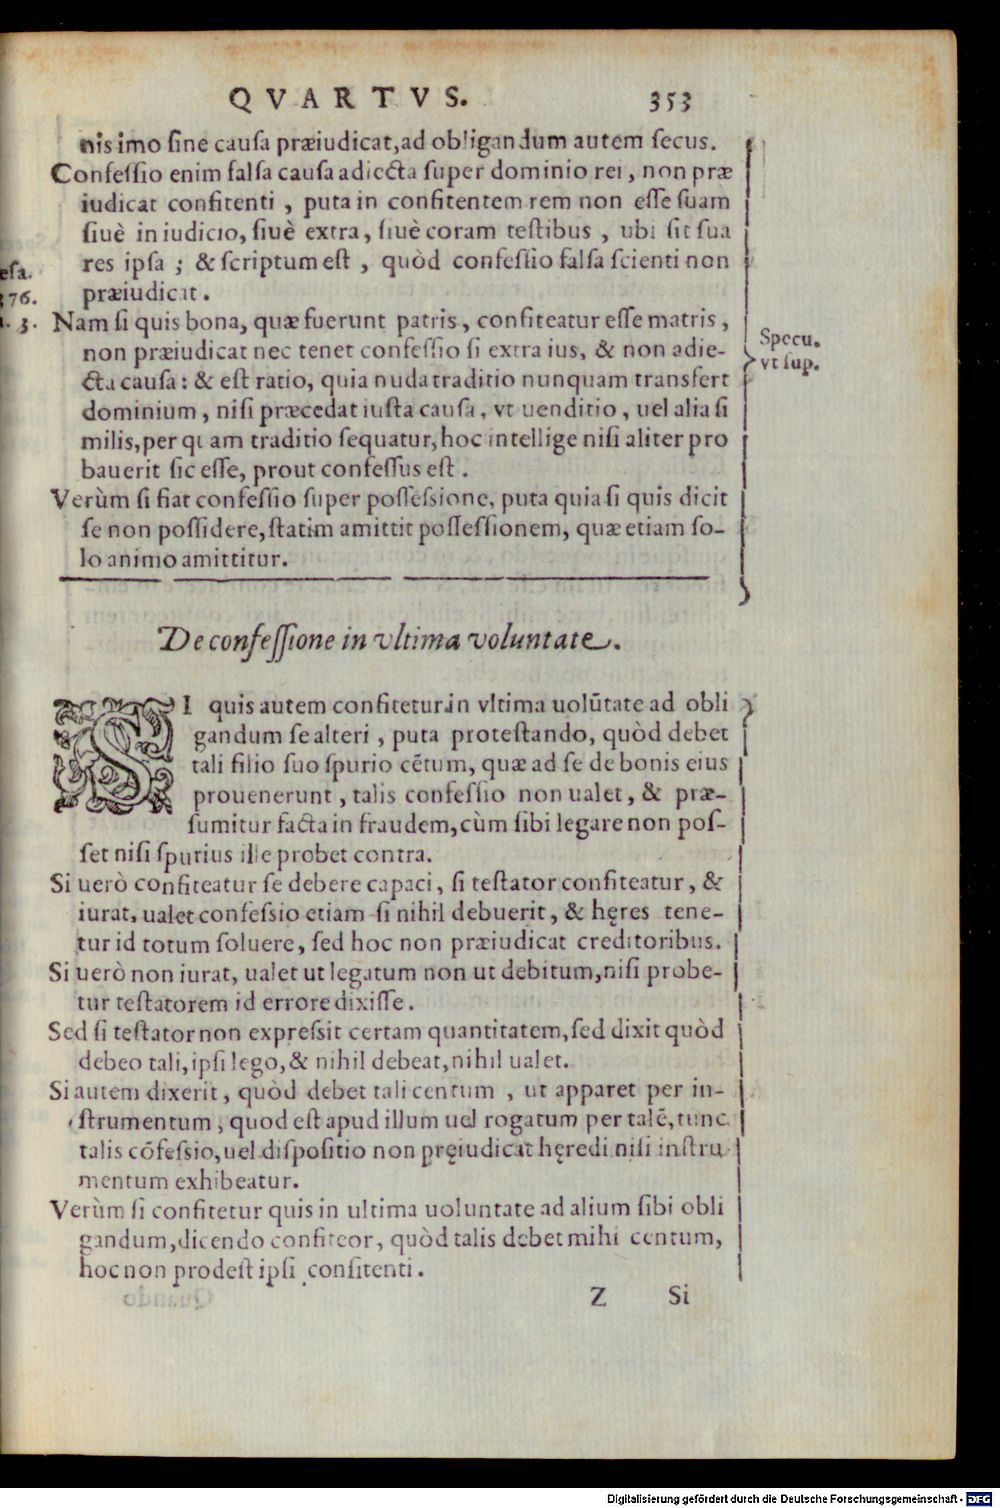 QVARTVS. 353
nis imo ſine cauſa præiudicat, ad obligandum autem ſecus.
Confeſſio enim falſa cauſa adiecta ſuper dominio rei, non præ
iudicat confitenti, puta in confitentem rem non eſſe ſuam
ſiuè in iudicio, ſiuè extra, ſiuè coram teſtibus, ubi ſit ſua
res ipſa; & ſcriptum eſt, quòd confeſſio falſa ſcienti non
præiudicat.
Nam ſi quis bona, quæ fuerunt patris, confiteatur eſſe matris,
non præiudicat nec tenet confeſſio ſi extra ius, & non adie-
cta cauſa: & eſt ratio, quia nuda traditio nunquam transfert
dominium, niſi præcedat iuſta cauſa, vt uenditio, uel alia ſi
milis, per quam traditio ſequatur, hoc intellige niſi aliter pro
bauerit ſic eſſe, prout confeſſus eſt.
Verùm ſi fiat confeſſio ſuper poſſeſsione, puta quia ſi quis dicit
ſe non poſſidere, ſtatim amittit poſſeſſionem, quæ etiam ſo-
lo animo amittitur.
eſa.
376.
3.
Specu.
vt ſup.
De confeſſione in vltima voluntate.
SI quis autem confitetur in vltima uolũtate ad obli
gandum ſe alteri, puta proteſtando, quòd debet
tali filio ſuo ſpurio cẽtum, quæ ad ſe de bonis eius
prouenerunt, talis confeſſio non ualet, & præ-
ſumitur facta in fraudem, cùm ſibi legare non poſ-
ſet niſi ſpurius ille probet contra.
Si uerò confiteatur ſe debere capaci, ſi teſtator confiteatur, &
iurat, ualet confeſsio etiam ſi nihil debuerit, & hęres tene-
tur id totum ſoluere, ſed hoc non præiudicat creditoribus.
Si uerò non iurat, ualet ut legatum non ut debitum, niſi probe-
tur teſtatorem id errore dixiſſe.
Sed ſi teſtator non expreſsit certam quantitatem, ſed dixit quòd
debeo tali, ipſi lego, & nihil debeat, nihil ualet.
Si autem dixerit, quòd debet tali centum, ut apparet per in-
ſtrumentum, quod eſt apud illum uel rogatum per talẽ, tunc
talis cõfeſsio, uel diſpoſitio non pręiudicat hęredi niſi inſtru
mentum exhibeatur.
Verùm ſi confitetur quis in ultima uoluntate ad alium ſibi obli
gandum, dicendo confiteor, quòd talis debet mihi centum,
hoc non prodeſt ipſi confitenti.
Z Si
Digitalisierung gefördert durch die Deutsche Forschungsgemeinschaft - DFG